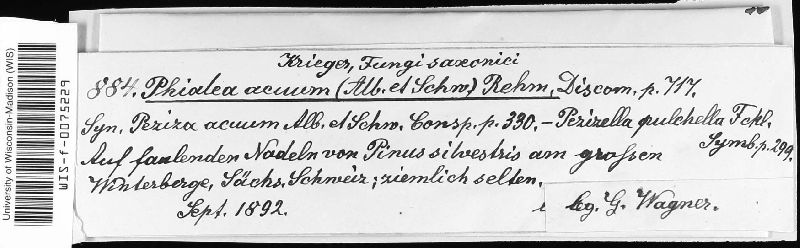 University of Wisconsin-Madison (WIS)
WIS-f-0075229
Krieger, Fungi saxonici
884. Phialea acuum (Alb. et Schw.) Rehm, Discom. p. 717.
Syn. Peziza acuum Alb. et Schw. Consp. p. 330. — Pezizella pulchella Fckl.
Symb. p. 299.
Auf faulenden Nadeln von Pinus silvestris am grossen
Winterberge, Sächs. Schweiz; ziemlich selten.
Sept. 1892.
leg. G. Wagner.